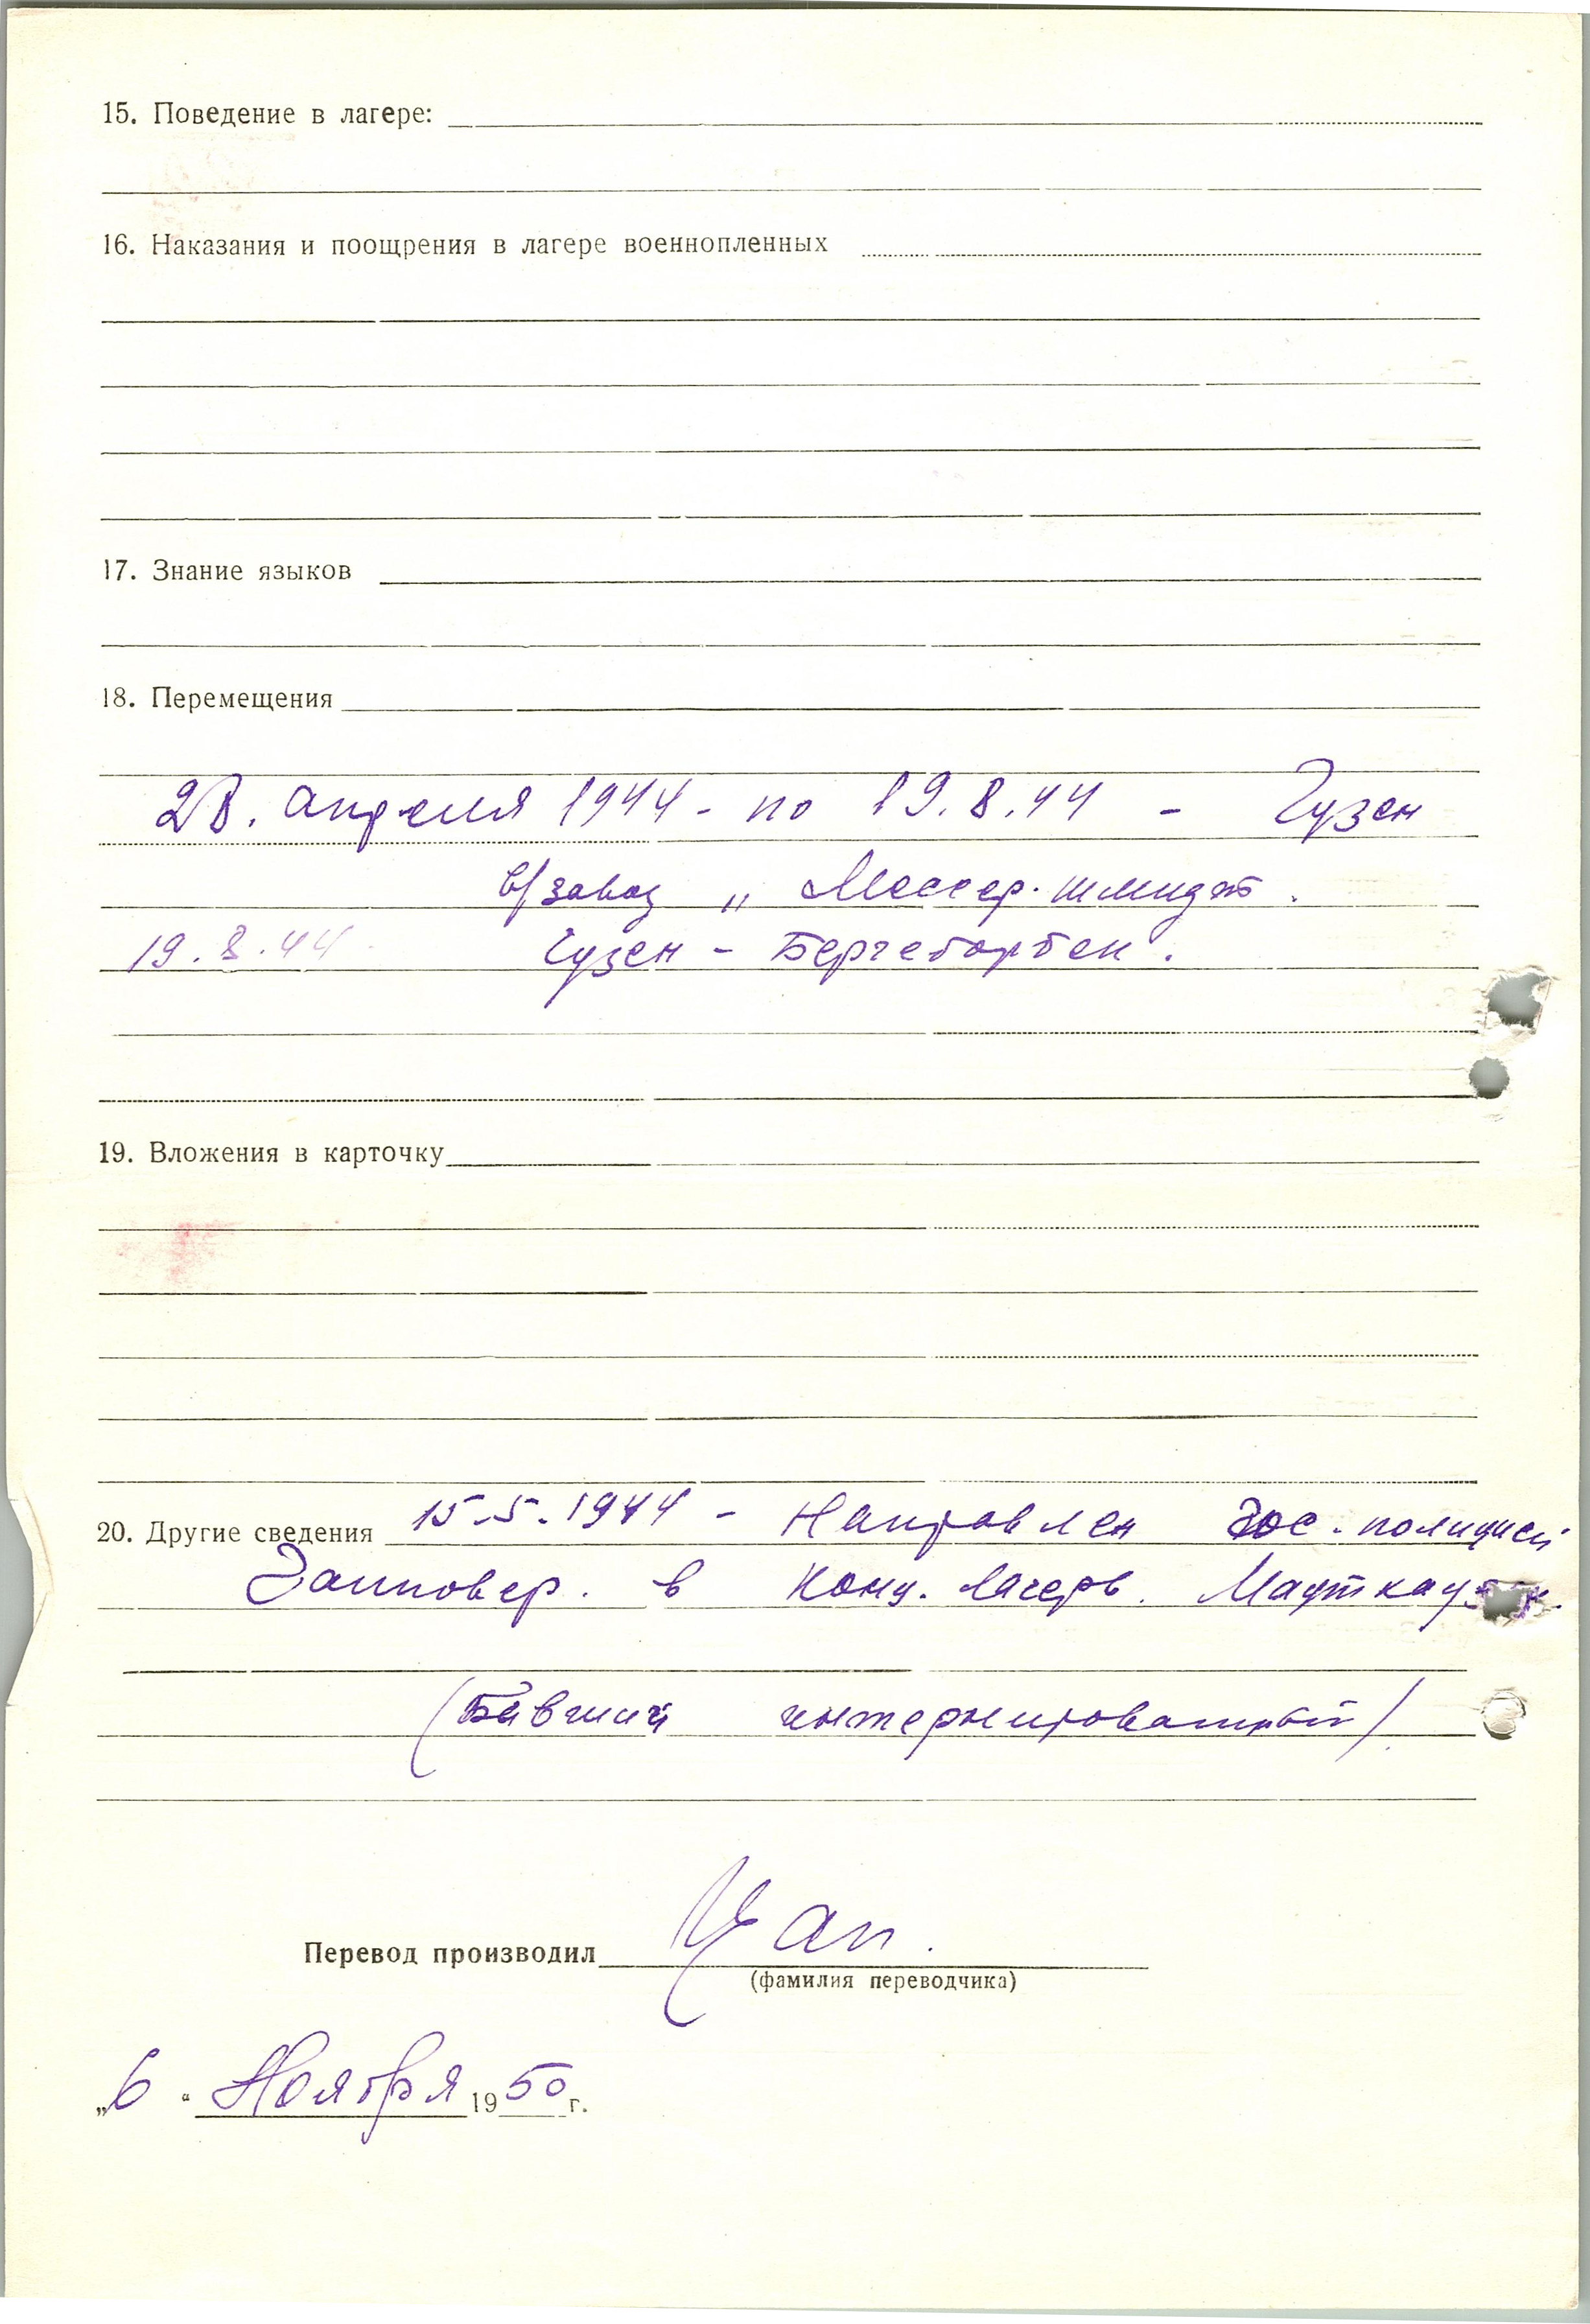 15. Поведение в лагере:
16. Наказания и поощрения в лагере военнопленных
17. Знание языков
18. Перемещения
28. апреля 1944 - по 19.8.44 - Гузен
в/завод „ Мессер. шмидт.
19.8.44 Гузен -
19. Вложения в карточку
20. Другие сведения 15.5.1944 - Направлен Гос. полицией
Ганновер. в Конц. лагерь.
(Бывший интернированный)
Перевод производил Цап.
(фамилия переводчика)
„6“ Ноября 1950 г.